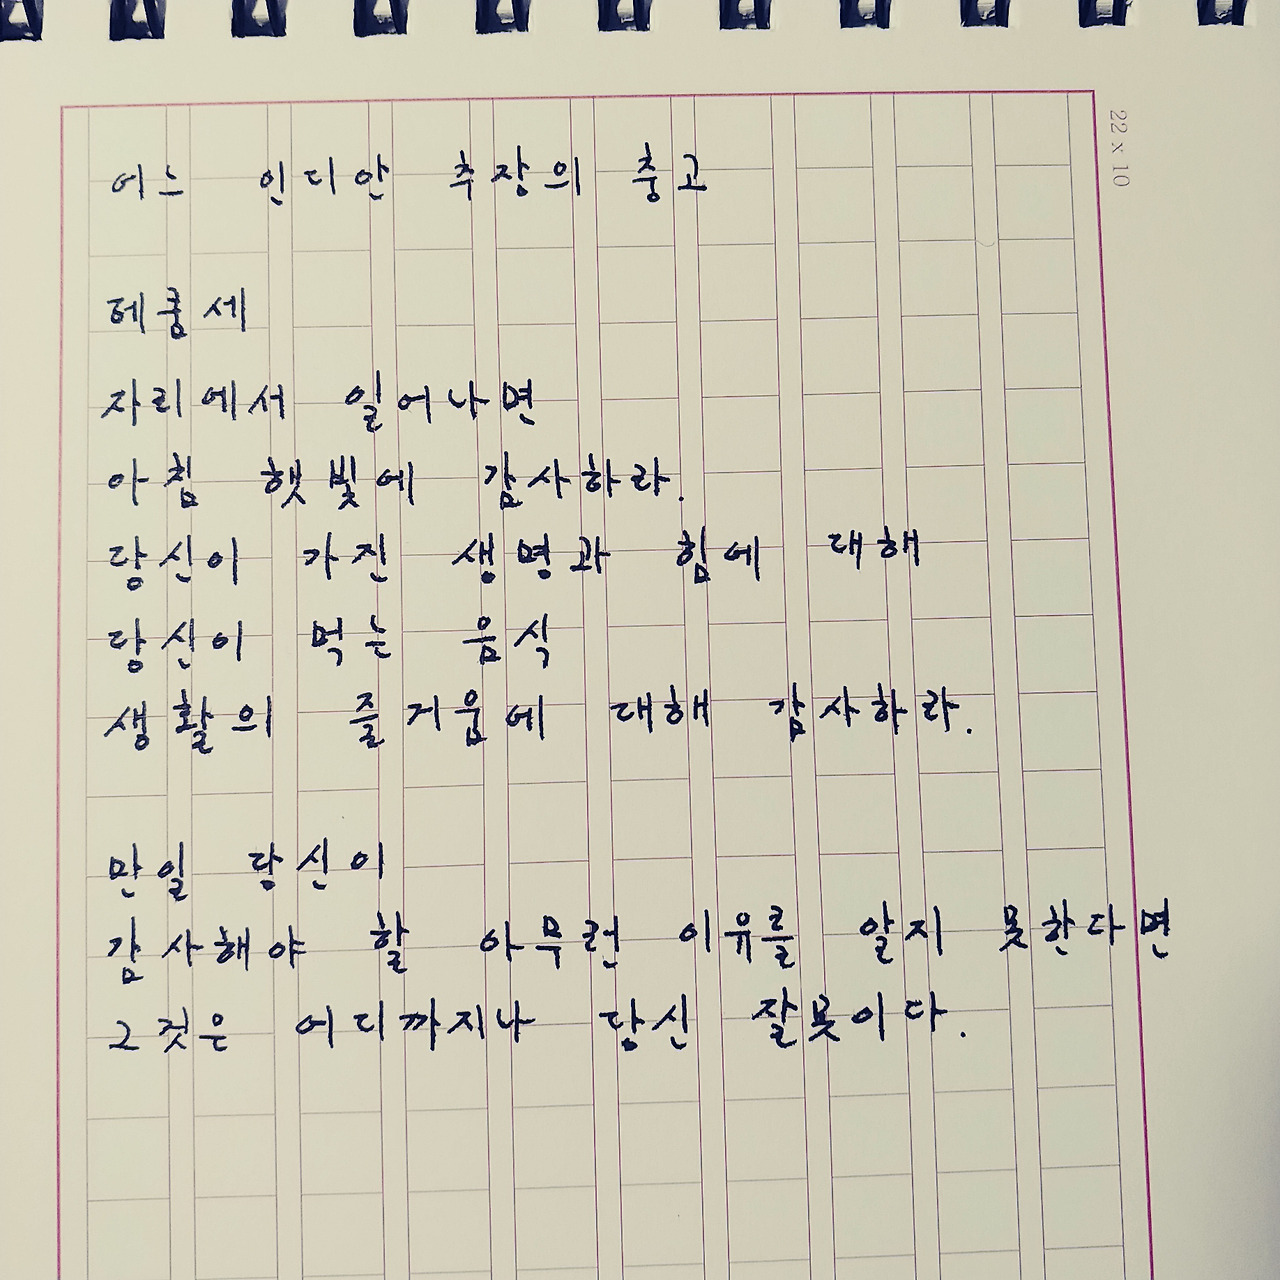 어느 인디안 추장의 충고
테쿰세
자리에서 일어나면
아침 햇빛에 감사하라.
당신이 가진 생명과 힘에 대해
당신이 먹는 음식
생활의 즐거움에 대해 감사하라.
만일 당신이
감사해야 할 아무런 이유를 알지 못한다면
그것은 어디까지나 당신 잘못이다.
22 x 10